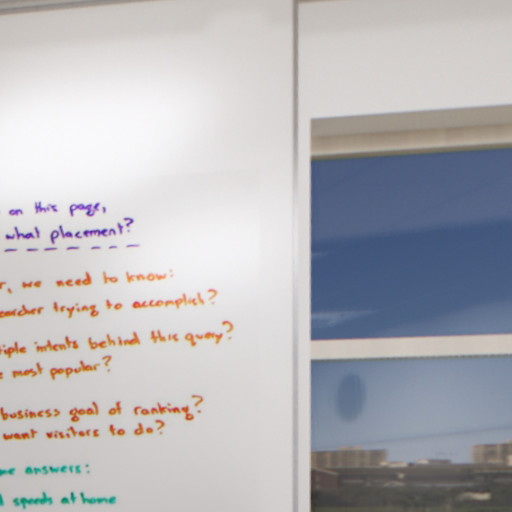 on this page,
what placement?
r, we need to know:
earcher trying to accomplish?
tiple intents behind this query?
e most popular?
business goal of ranking?
want visitors to do?
me answers:
d speeds at home